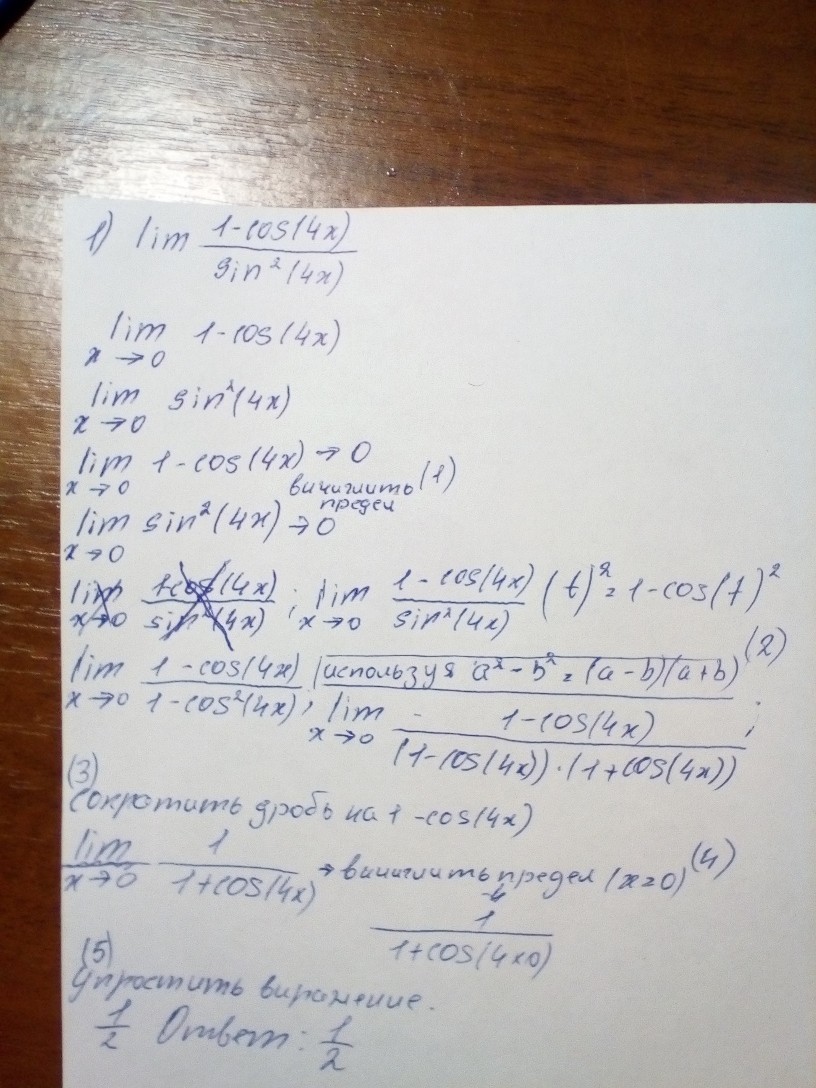 1) lim (1-cos(4x))/(sin²(4x))
lim x→0 1-cos(4x)
lim x→0 sin²(4x)
lim x→0 1-cos(4x) → 0
вичислить предел (1)
lim x→0 sin²(4x) → 0
lim x→0 (1-cos(4x))/(sin²(4x)) (t)² = 1-cos(t)²
lim x→0 (1-cos(4x))/(1-cos²(4x)) (используя a²-b² = (a-b)(a+b)) (2)
; lim x→0 (1-cos(4x))/((1-cos(4x))·(1+cos(4x))) ;
(3)
Сократить дробь на 1-cos(4x)
lim x→0 1/(1+cos(4x)) → вичислить предел (x=0) (4)
1/(1+cos(4×0))
(5)
Упростить виражение.
1/2 Ответ: 1/2